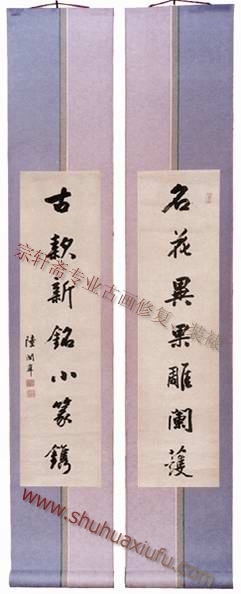 名花異果雕闌護
古欵新銘小篆鐫
陸潤庠
宗轩斋专业古画修复、装裱
www.shuhuaxiufu.com